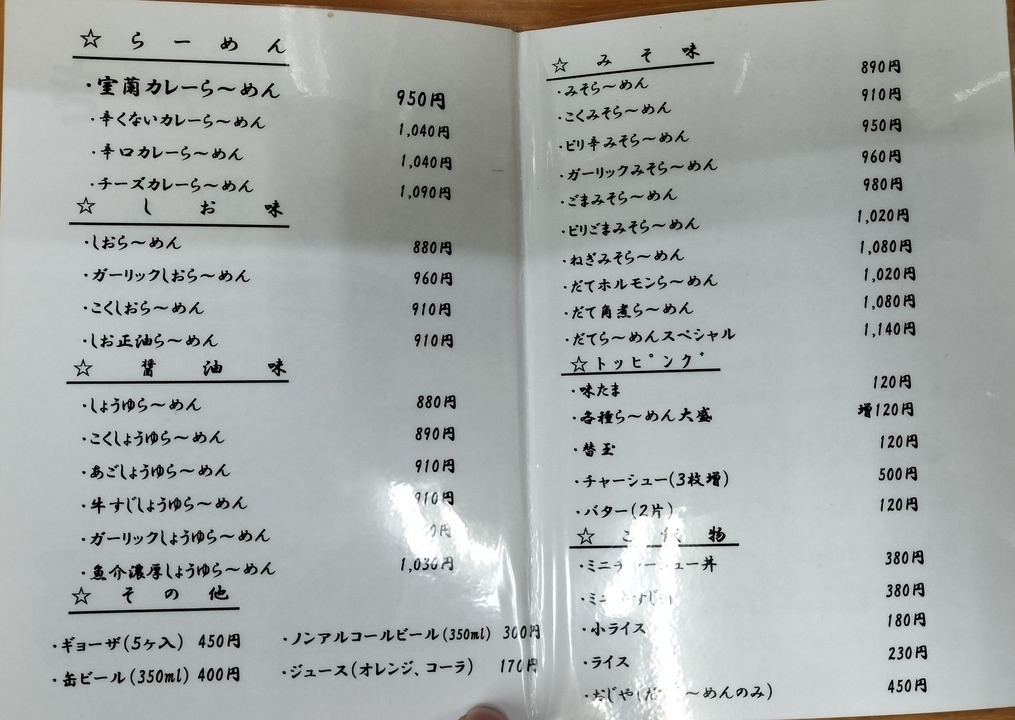 ☆ らーめん
・室蘭カレーら～めん 950円
・辛くないカレーら～めん 1,040円
・辛口カレーら～めん 1,040円
・チーズカレーら～めん 1,090円
☆ しお味
・しおら～めん 880円
・ガーリックしおら～めん 960円
・こくしおら～めん 910円
・しお正油ら～めん 910円
☆ 醤油味
・しょうゆら～めん 880円
・こくしょうゆら～めん 890円
・あごしょうゆら～めん 910円
・牛すじしょうゆら～めん 910円
・ガーリックしょうゆら～めん
・魚介濃厚しょうゆら～めん 1,030円
☆ その他
・ギョーザ(5ヶ入) 450円
・缶ビール(350ml) 400円
・ノンアルコールビール(350ml) 300円
・ジュース(オレンジ、コーラ) 170円
☆ みそ味
・みそら～めん 890円
・こくみそら～めん 910円
・ピリ辛みそら～めん 950円
・ガーリックみそら～めん 960円
・ごまみそら～めん 980円
・ピリごまみそら～めん 1,020円
・ねぎみそら～めん 1,080円
・だてホルモンら～めん 1,020円
・だて角煮ら～めん 1,080円
・だてら～めんスペシャル 1,140円
☆トッピング
・味たま 120円
・各種ら～めん大盛 増120円
・替玉 120円
・チャーシュー(3枚増) 500円
・バター(2片) 120円
☆ ご飯物
・ミニチャーシュー丼 380円
・ミニ 380円
・小ライス 180円
・ライス 230円
・おじや(だてら～めんのみ) 450円